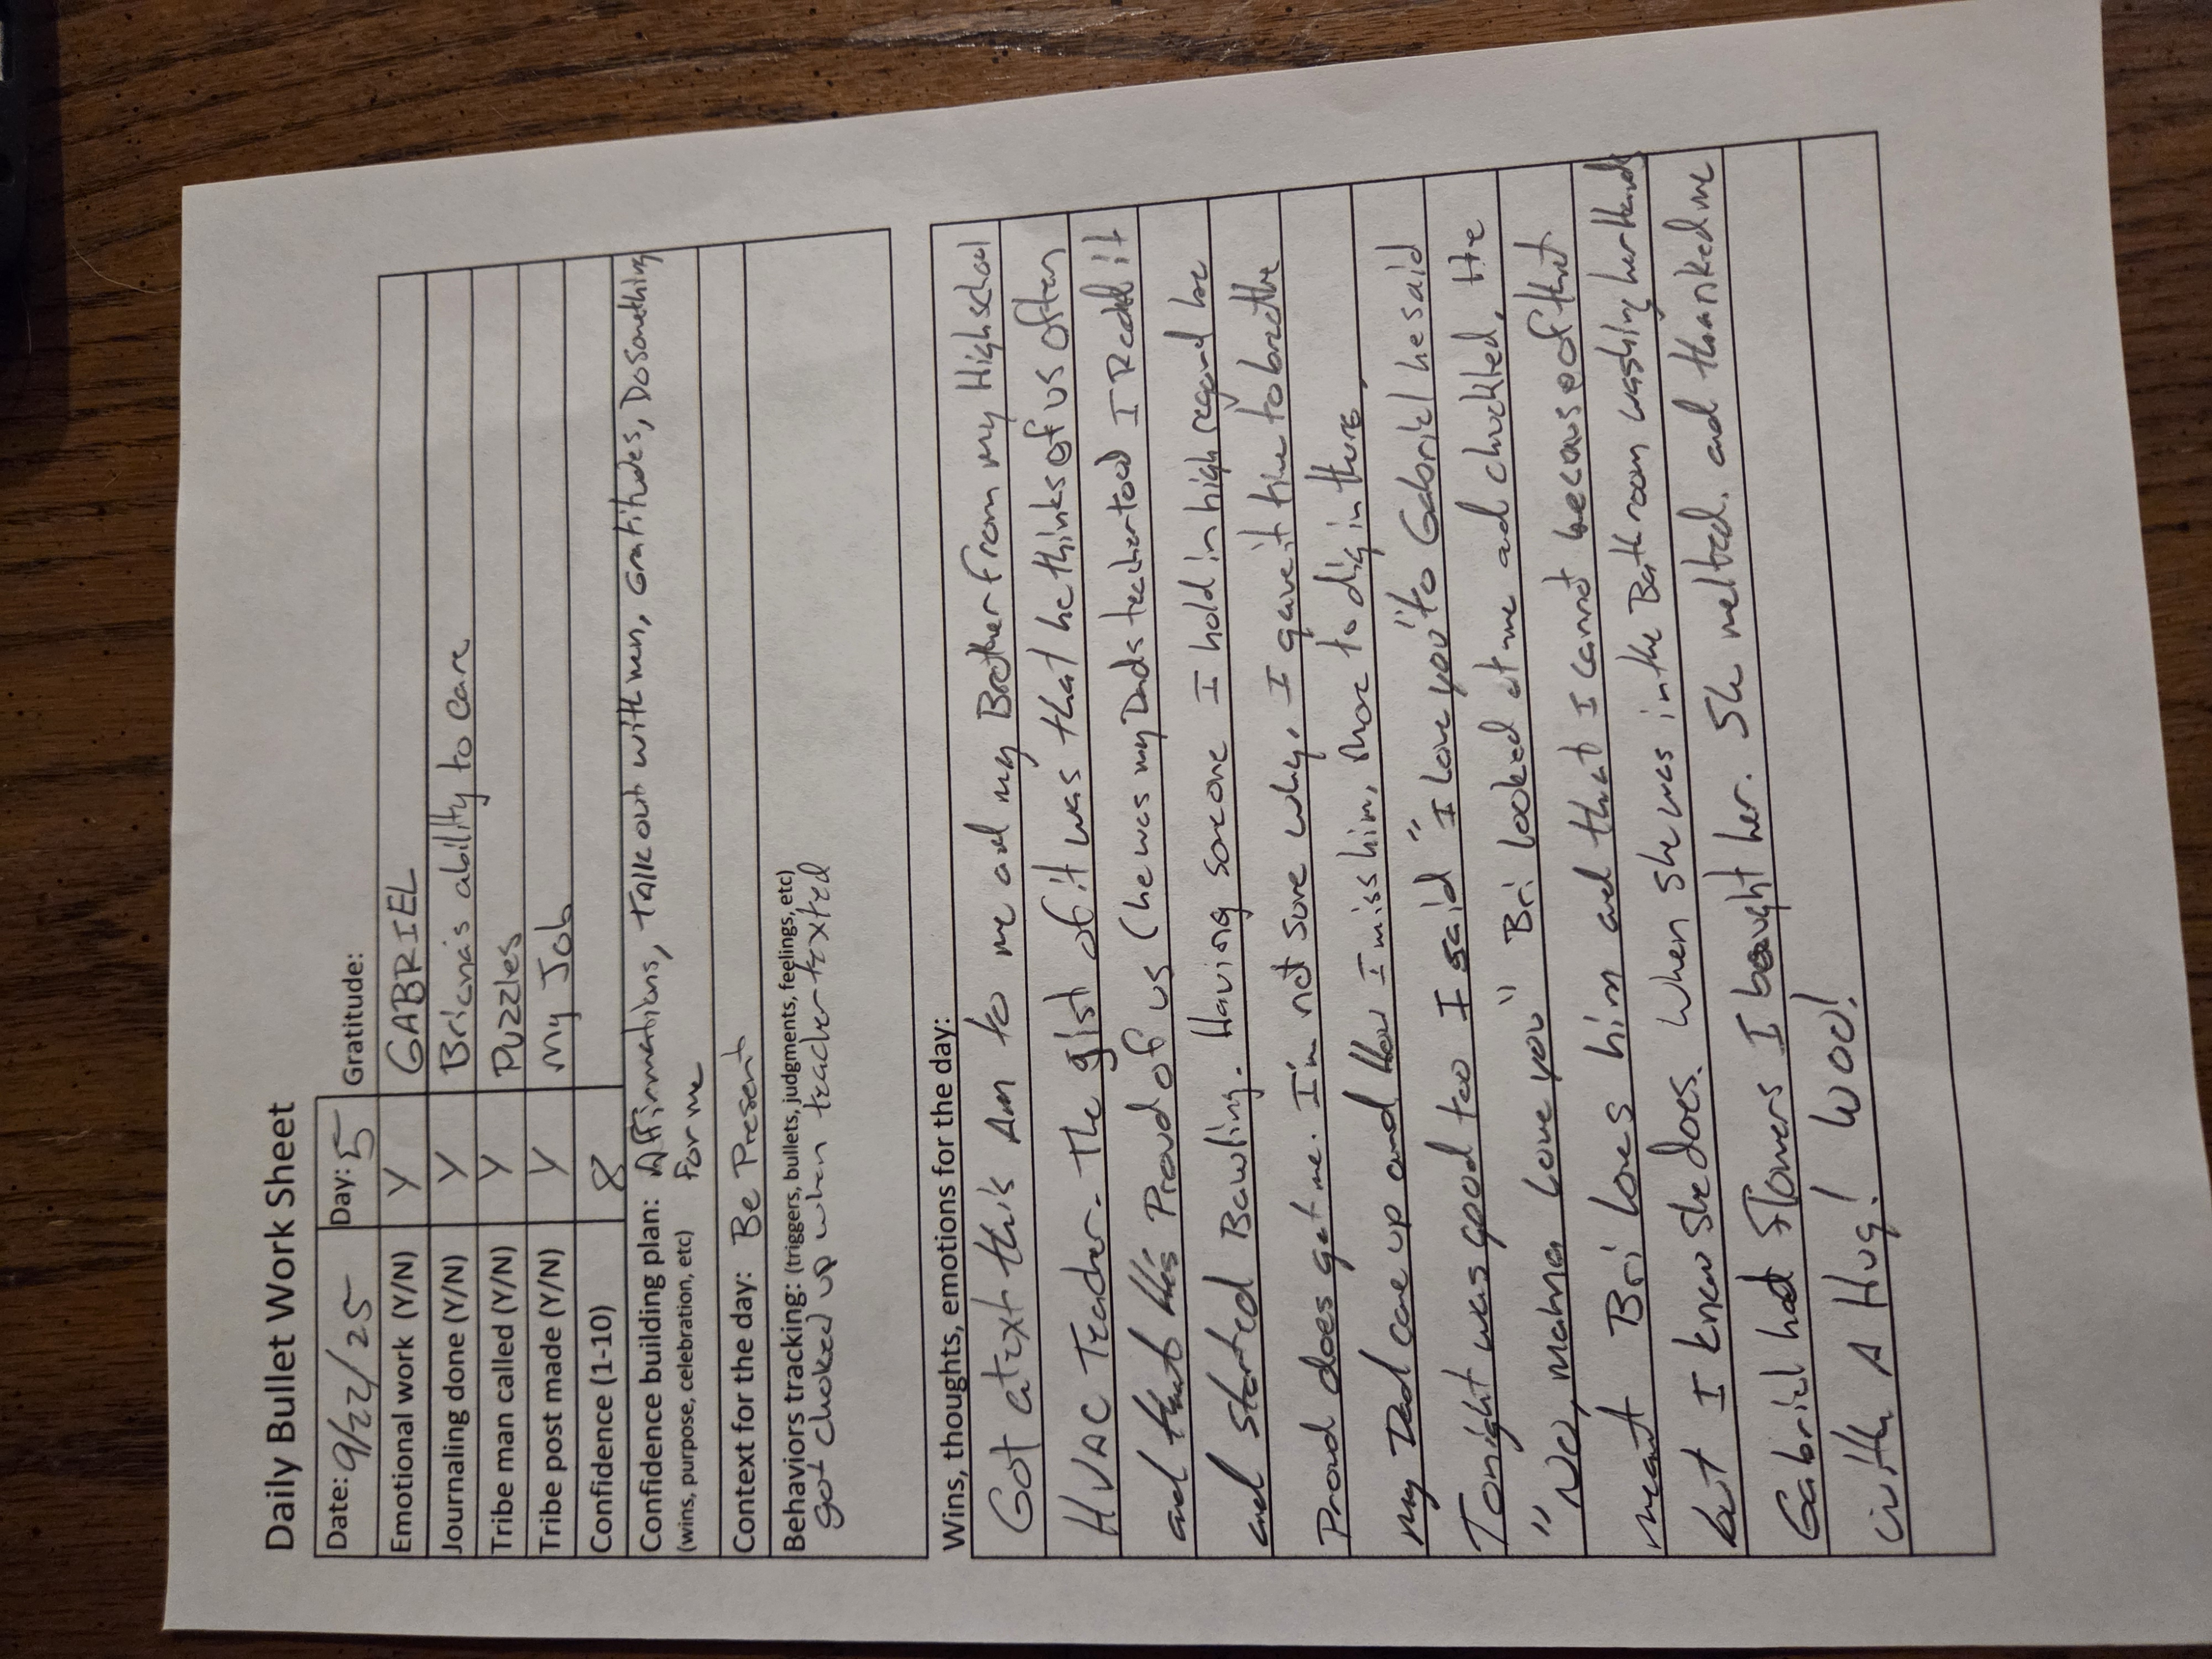 Daily Bullet Work Sheet
Date: 9/22/25 Day: 5 Gratitude:
Emotional work (Y/N) Y GABRIEL
Journaling done (Y/N) Y Briana's ability to care
Tribe man called (Y/N) Y Puzzles
Tribe post made (Y/N) Y My Job
Confidence (1-10) 8
Confidence building plan: Affirmations, Talk out with men, Gratitudes, Do something
(wins, purpose, celebration, etc) for me
Context for the day: Be Present
Behaviors tracking: (triggers, bullets, judgments, feelings, etc)
got choked up when teacher texted
Wins, thoughts, emotions for the day:
Got a text this AM to me and my Brother from my High school
HVAC Teacher. The gist of it was that he thinks of us often
and that He's Proud of us (he was my Dads teacher too) I Read it
and started Bawling. Having someone I hold in high regard be
Proud does get me. I'm not sure why. I gave it time to breathe
my Dad came up and How I miss him, more to dig in there.
Tonight was good too I said "I love you" to Gabriel he said
"No, mama love you" Bri looked at me and chuckled, He
meant Bri loves him and that I cannot because of that
but I know she does. When she was in the Bathroom washing her Hands
Gabriel had Flowers I bought her. She melted. and thanked me
with A Hug! Woo!